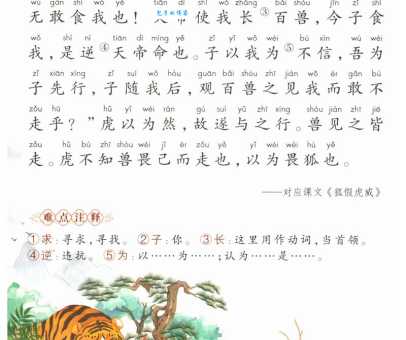 wú gǎn shí wǒ yě tiān dì shǐ wǒ zhǎng bǎi shòu jīn zǐ shí
无敢食我也！天帝使我长③百兽，今子食
wǒ shì nì tiān dì mìng yě zǐ yǐ wǒ wéi bú xìn wú wèi
我，是逆④天帝命也。子以我为⑤不信，吾为
zǐ xiān xíng zǐ suí wǒ hòu guān bǎi shòu zhī jiàn wǒ ér gǎn bù
子先行，子随我后，观百兽之见我而敢不
zǒu hū hǔ yǐ wéi rán gù suì yǔ zhī xíng shòu jiàn zhī jiē
走乎？”虎以为然，故遂与之行。兽见之皆
zǒu hǔ bù zhī shòu wèi jǐ ér zǒu yě yǐ wéi wèi hú yě
走。虎不知兽畏己而走也，以为畏狐也。
——对应课文《狐假虎威》
难点注释
①求：寻求，寻找。②子：你。③长：这里用作动词，当首领。
④逆：违抗。⑤为：以……为……；认为……是……。